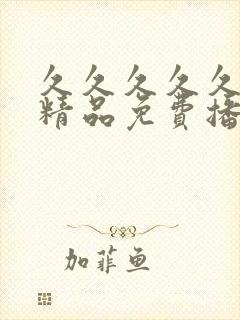 久久久久久
精品免费播
加菲鱼